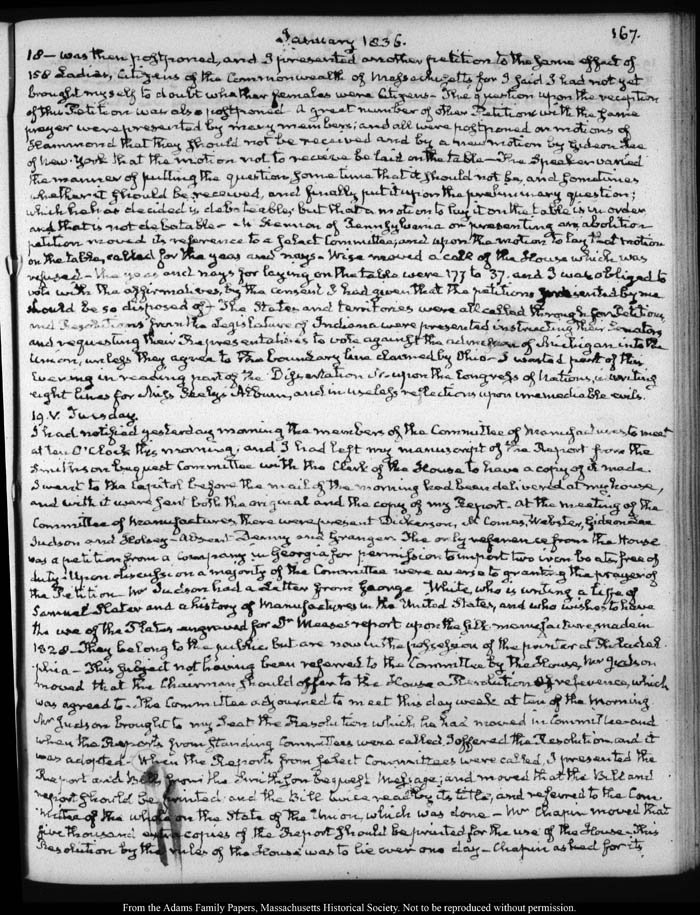 January 1836.
167.
18 — was then postponed, and I presented another petition to the same effect of
158 Ladies, Citizens of the Commonwealth of Massachusetts for I said I had not yet
brought myself to doubt whether females were Citizens — The question upon the reception
of this Petition was also postponed — A great number of other Petitions with the same
prayer were presented by many members; and all were postponed on motions of
Hammond that they should not be received and by a new motion by Gideon Lee
of New-York that the motion not to receive be laid on the table — The Speaker varied
the manner of putting the question, some time that it should not be, and sometimes
whether it should be received, and finally put it upon the preliminary question;
which he has decided is debateable; but that a motion to lay it on the table is in order
and that is not debatable — of Pennsylvania on presenting an abolition
petition moved its reference to a select Committee; and upon the motion to lay that motion
on the table, called for the yeas and nays — Wise moved a call of the House which was
refused — the yeas and nays for laying on the table were 177 to 37. and I was obliged to
vote with the affirmatives, by the consent I had given that the petitions presented by me
should be so disposed of. The States and territories were all called through for Petitions
and Resolutions from the Legislature of Indiana were presented instructing their Senators
and requesting their Representatives to vote against the admission of Michigan into the
Union, unless they agree to the boundary line claimed by Ohio — I wasted part of this
Evening in reading part of the Dissertation upon the Congress of Nations, in writing
eight lines for Miss Seely's Album, and in useless reflections upon irremediable evils.
19. V. Tuesday.
I had notified yesterday morning the members of the Committee of Manufactures to meet
at ten O'Clock this morning, and I had left my manuscript of the Report from the
Smithson bequest Committee with the Clerk of the House to have a copy of it made.
I went to the Capitol before the mail of the morning had been delivered at my house,
and with it were sent both the original and the copy of my Report — At the meeting of the
Committee of Manufactures, there were present Dickerson, McComas, Webster, Gideon Lee
Judson and Halsey — absent Denny and Granger. The only reference from the House
was a petition from a Company in Georgia for permission to import two iron boats, free of
duty. Upon discussion a majority of the Committee were averse to granting the prayer of
the Petition. Mr Judson had a Letter from George White, who is writing a life of
Samuel Slater and a history of Manufactures in the United States, and who wishes to have
the use of the Plates engraved for Dr Mease's report upon the silk manufacture, made in
1828 — They belong to the public but are now in the possession of the printer at Philadel-
phia — This subject not having been referred to the Committee by the House, Mr Judson
moved that the Chairman should offer to the House a Resolution of reference, which
was agreed to — The Committee adjourned to meet this day week at ten of the morning
Mr Judson brought to my seat the Resolution which he had moved in Committee — and
when the Reports from standing Committees were called, I offered the Resolution and it
was adopted — When the Reports from select Committees were called, I presented the
Report and Bill from the Smithson bequest Message; and moved that the Bill and
report should be printed and the Bill twice read by its title, and referred to the Com-
mittee of the whole on the State of the Union, which was done — Mr Chapin moved that
five thousand extra copies of the Report should be printed for the use of the House — This
Resolution by the rules of the House was to lie over one day — Chapin asked for its
From the Adams Family Papers, Massachusetts Historical Society. Not to be reproduced without permission.